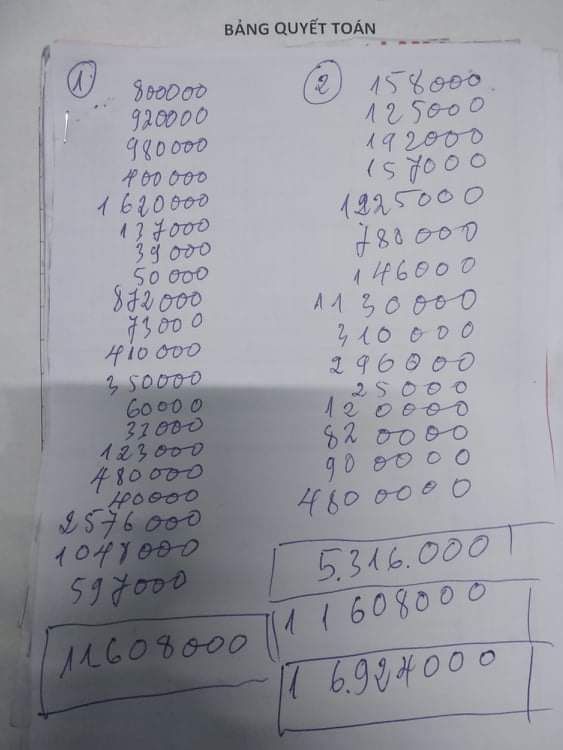 BẢNG QUYẾT TOÁN
1
800000
920000
980000
400000
1620000
137000
39000
50000
872000
73000
410000
350000
60000
33000
123000
480000
40000
2576000
1048000
597000
11608000
2
158000
125000
192000
157000
1225000
780000
146000
1130000
310000
296000
25000
120000
82000
90000
480000
5.316.000
11608000
16.924000